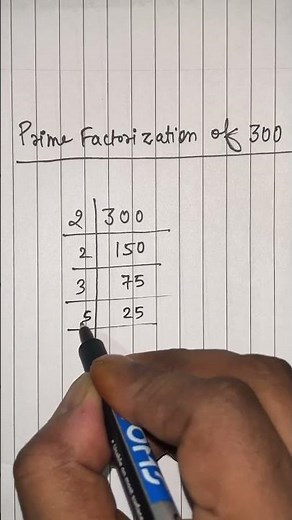 Prime Factorization of 300
2 300
2 150
3 75
5 25